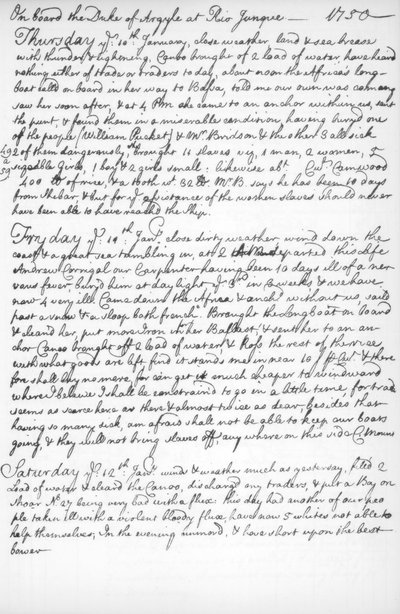 On board the Duke of Argyle at Rio Junque — 1750 —
Thursday yᵉ 10ᵗʰ January, close weather land & sea breeze
with thunder & lightening, Canoo brought of 2 load of water have heard
nothing either of trade or traders to day, about noon the Affrica's long-
boat calld on board in her way to Bassa, told me our own was coming
saw her soon after, & at 4 P.m. she came to an anchor within us, sent
the punt, & found them in a miserable condition, having buryd one
of the people (William Pucket) & Mʳ Bridson & the other 3 all sick
492 of them dangerously, brought 11 slaves viz, 1 man, 2 women, 5
a
59 sizeable Girls, 1 boy & 2 girls small: likewise abᵗ Cwᵗ Camwood
400 lᵇ of rice, & a tooth wᵗ 32 lᵇ Mʳ B. says he has been 10 days
from Shebar & but for yᵉ assistance of the women slaves should never
have been able to have reachd the Ship.
Fryday yᵉ 11ᵗʰ Janʸ close dirty weather, wind down the
coast & a great sea tumbling in, at 2 departed this life
Andrew Corrigal our Carpenter having been 10 days ill of a ner-
vous fever, buryd him at day light yᵉ 3ᵈ in 3 weeks & we have
now 4 very ill. Came down the Africa & anchᵈ without us, said
past a snow & a sloop both french. Brought the Longboat on board
& cleand her, put more Iron in her Ballast & sent her to an an-
chor Canoo brought off 2 load of water & Ross the rest of the rice
with what goods are left find it stands me in near 10 / Cwᵗ & there
fore shall buy no more, for can get it much cheaper to windward
where I beleive I shall be constrain'd to go in a little time, for trade
seems as scarce here as there & almost twice as dear, besides that
having so many sick, am afraid shall not be able to keep our boats
going, & they will not bring slaves off, any where on this side C: Mount
Saturday yᵉ 12ᵗʰ Janʸ wind & weather much as yesterday, filld 2
Load of water & cleard the Canoo, dischargd any traders, & put a Boy on
Shoar Nº 27 being very bad with a flux. this day had another of our peo
ple taken ill with a violent bloody flux, have now 5 whites not able to
help themselves; In the evening unmoord, & hove short upon the best
bower